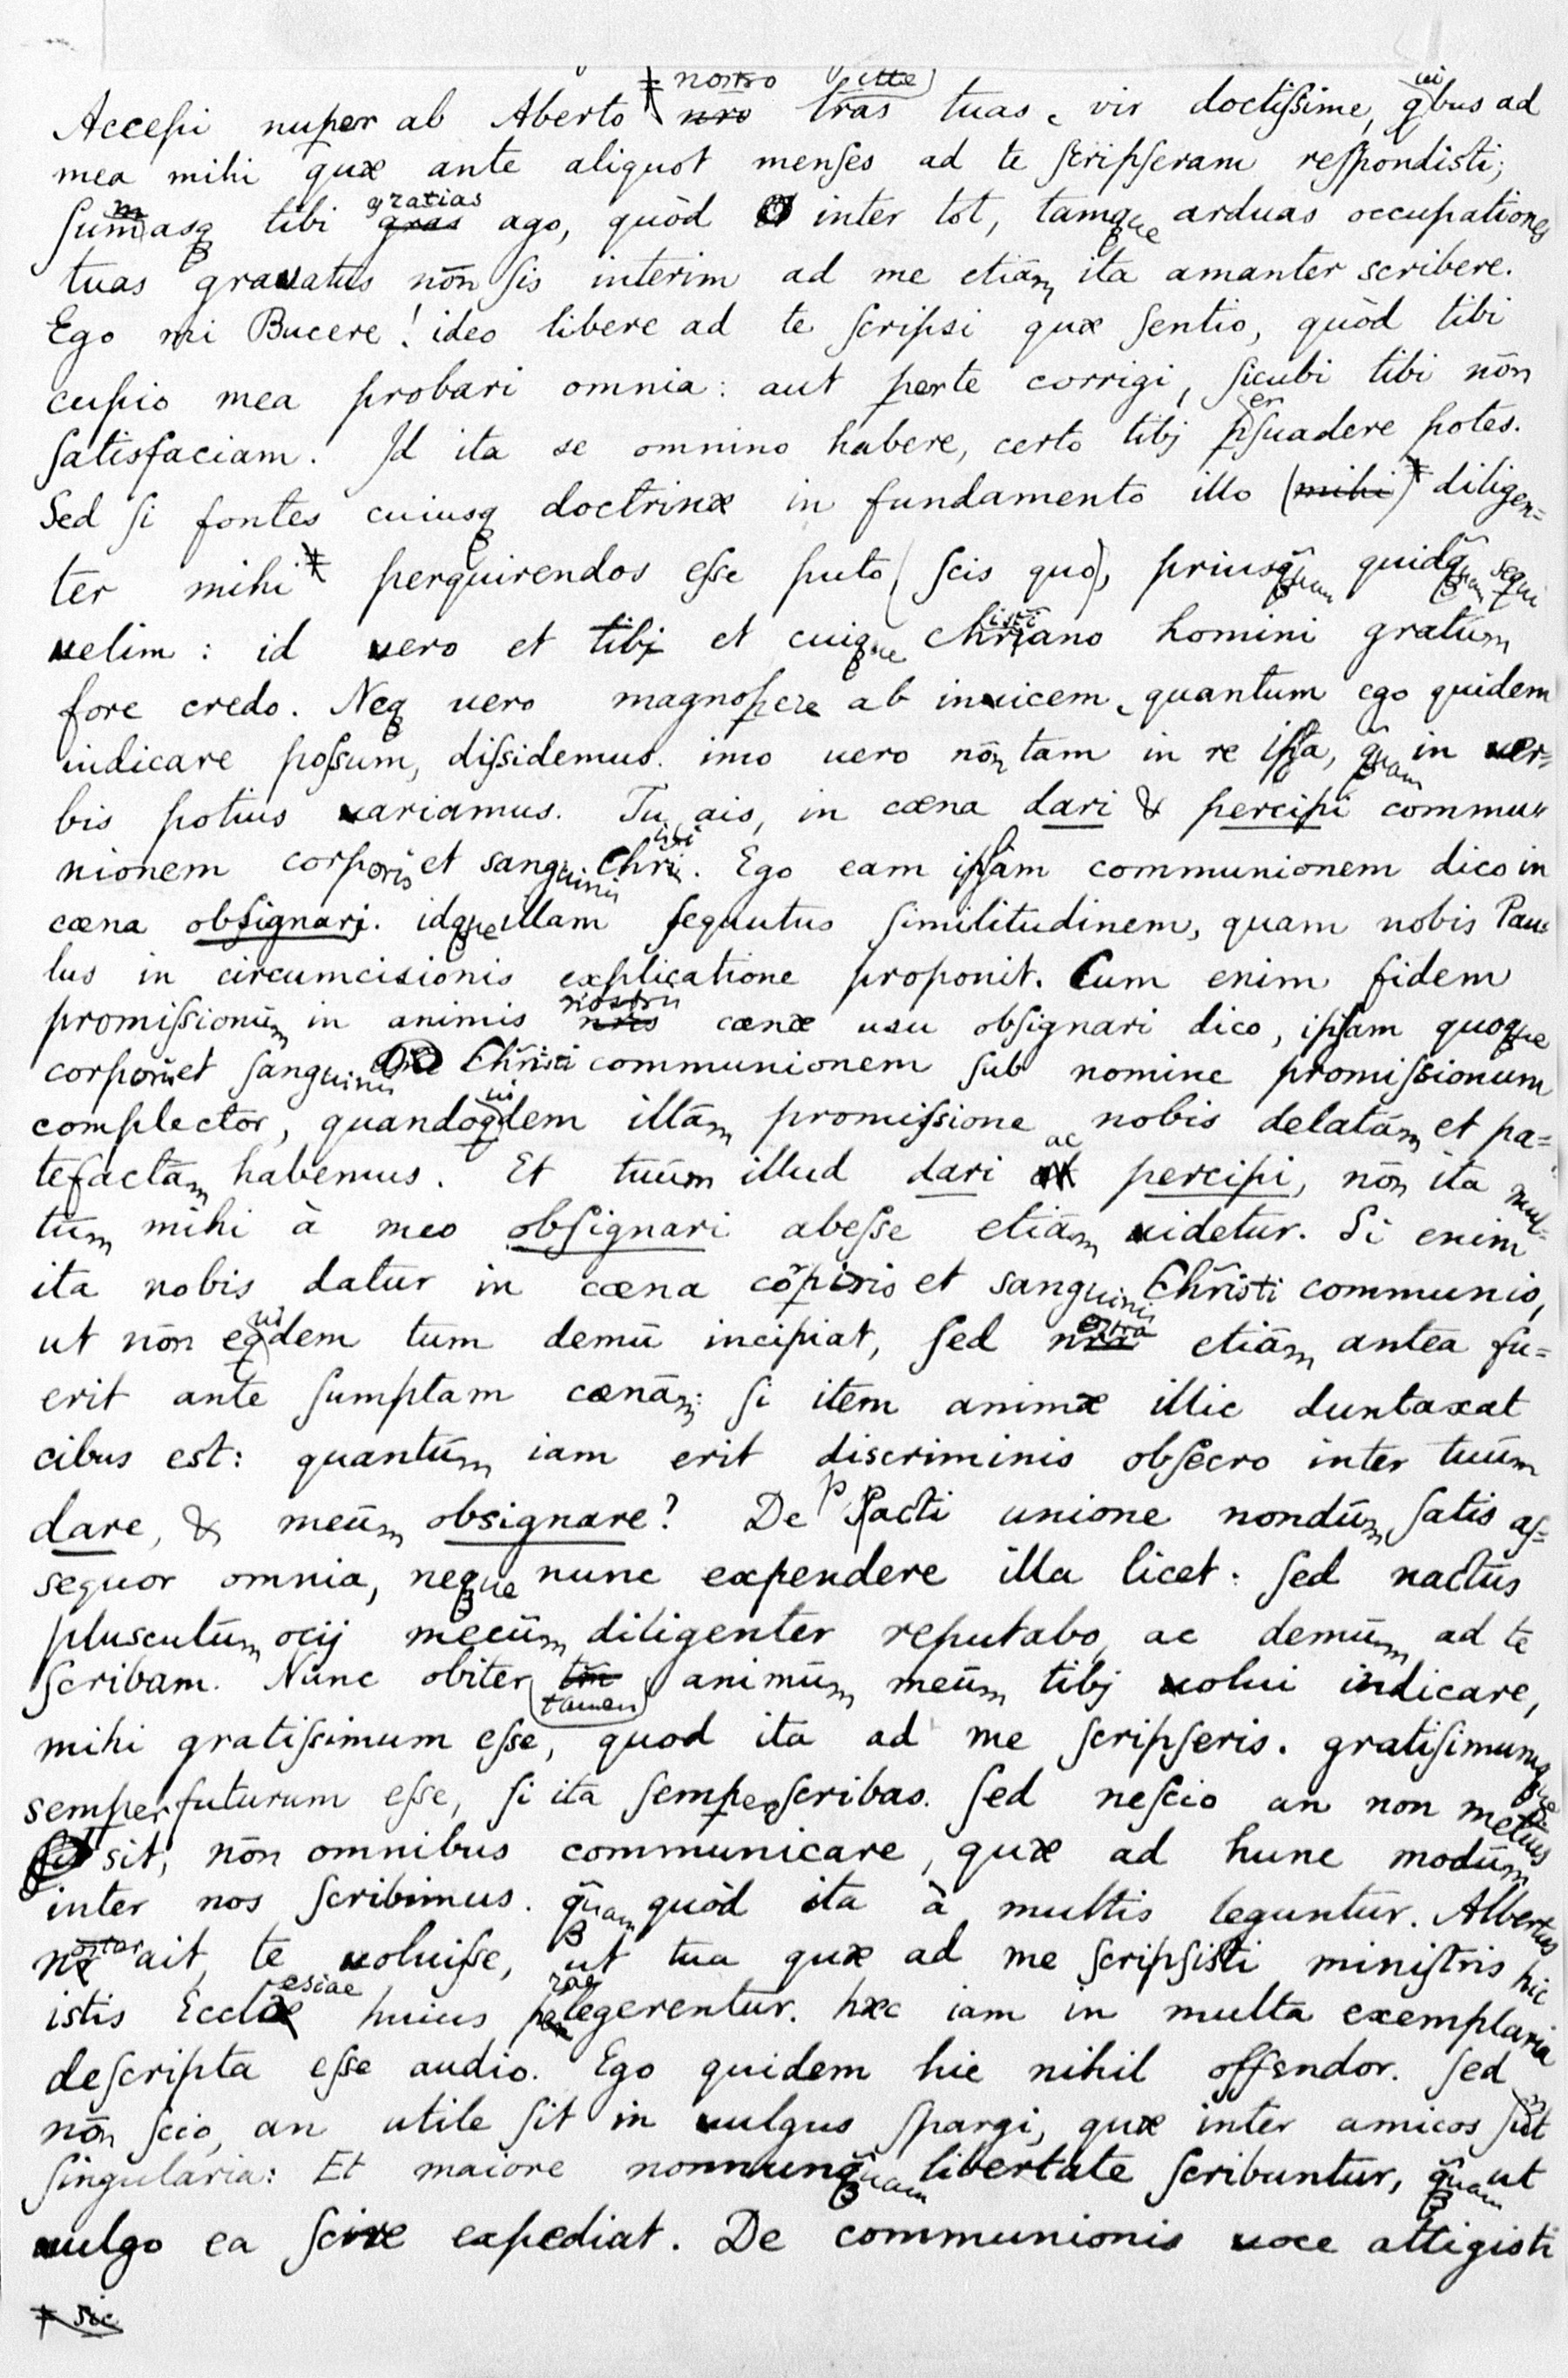 Accepi nuper ab Aberto ‡ nostro litte tras tuas, vir doctißime, quibus ad
mea mihi quæ ante aliquot menses ad te ſcripſeram reſpondisti;
ſummasq tibi gratias ago, quòd inter tot, tamque arduas occupationes
tuas gravatus nōn ſis interim ad me etiām ita amanter scribere.
Ego mi Bucere! ideo libere ad te ſcripsi quæ ſentio, quòd tibi
cupio mea probari omnia: aut per te corrigi, ſicubi tibi nōn
ſatisfaciam. Id ita se omnino habere, certo tibj perſuadere potes.
Sed ſi fontes cuiusq doctrinæ in fundamento illo (mihi)‡ diligen=
ter mihi‡ perquirendos eſse puto (ſcis quo), priusquam quidquam sequi
uelim: id vero et tibj et cuique christiano homini gratūm
fore credo. Neq uero magnopere ab inuicem, quantum ego quidem
indicare poſsum, diſsidemus. imo uero nōn tam in re ipſa, quam in uer=
bis potius variamus. Tu ais, in cæna dari & percipi commu=
nionem corporis et sanguinis Christi. Ego eam ipſam communionem dico in
cæna obſignarj. idque illam ſequutus ſimilitudinem, quam nobis Pau=
lus in circumcisionis explicatione proponit. Cum enim fidem
promiſsionūm in animis nostris cænæ usu obſignari dico, ipſam quoque
corporis et ſanguinis Christi communionem ſub nomine promiſsionum
complector, quandoquidem illām promiſsione nobis delatām et pa=
tefactām habemus. Et tuūm illud dari ac percipi, nōn ita mul=
tūm mihi à meo obſignari abeſse etiām uidetur. Si enim
ita nobis datur in cæna corporis et sanguinis Christi communio,
ut nōn equidem tum demū incipiat, ſed nostra etiām antea fu=
erit ante ſumptam cænām: ſi item animæ illic duntaxat
cibus est: quantūm iam erit discriminis obſecro inter tuūm
dare, & meūm obsignare? De Pacti unione nondūm ſatis aſ=
sequor omnia, neque nunc expendere illa licet: ſed nactus
plusculūm ocij mecūm diligenter reputabo, ac demūm ad te
ſcribam. Nunc obiter tamen animūm meūm tibj uolui indicare,
mihi gratiſsimum eſse, quod ita ad me ſcripſeris. gratiſimumque
semper futurum eſse, ſi ita ſemper ſcribas. ſed neſcio an non metius
sit, nōn omnibus communicare, quæ ad hunc modūm
inter nos ſcribimus. quam quòd ita à multis leguntur. Albertus
noster ait, te uoluiſse, ut tua quæ ad me ſcripſisti miniſtris hic
istis Ecclesiae huius praelegerentur. hæc iam in multa exemplaria
deſcripta eſse audio. Ego quidem hic nihil offendor. ſed
nōn ſcio, an utile ſit in uulgus ſpargi, quæ inter amicos ſūt
ſingularia: Et maiore nonnunquam libertate ſcribuntur, quam ut
uulgo ea ſcire expediat. De communionis uoce attigisti
‡ sic